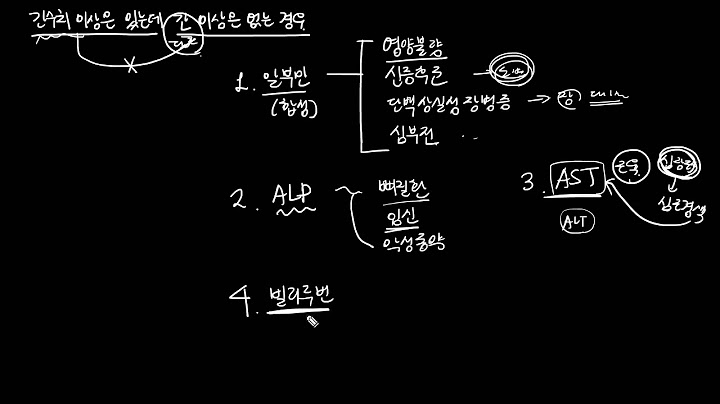 간수치 이상은 있는데 간 이상은 없는 경우
1. 알부민
(합성)
영양불량
신증후군
단백상실성 장병증 → 장
심부전 ..
2. ALP
뼈질환
임신
악성종양
3. AST
근육
심장
심근경색
ALT
4. 빌리루빈